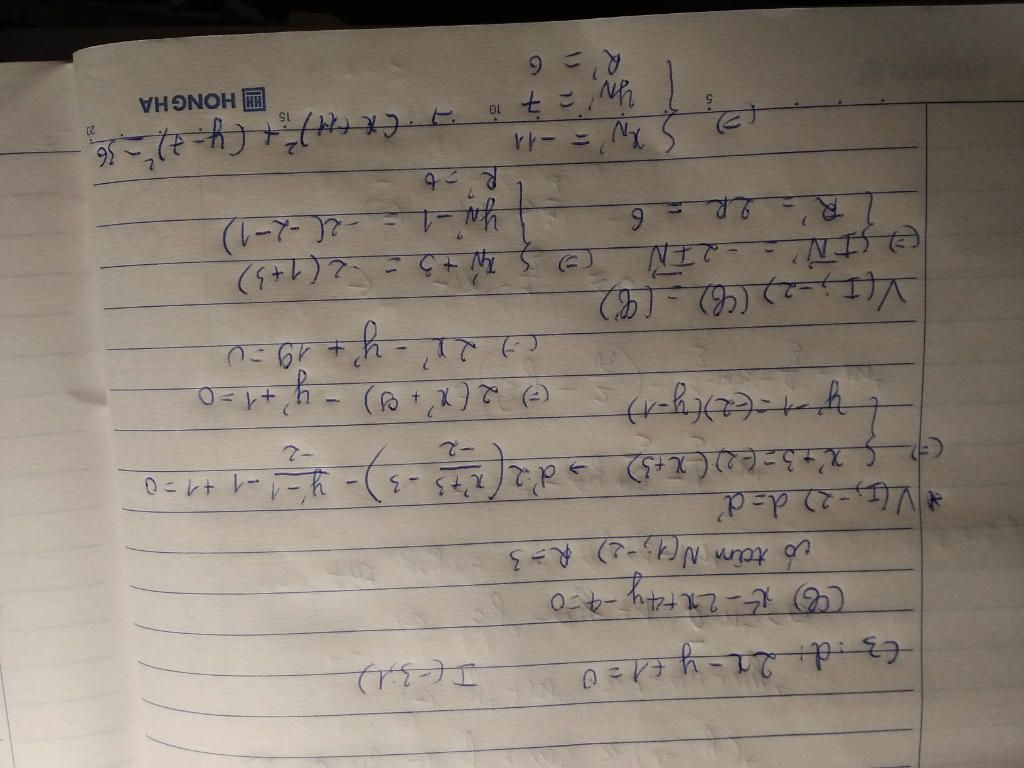 C3: d: 2x - y + 1 = 0 I(-3;1)
(C) x² - 2x + 4y - 4 = 0
có tâm N(1;-2) R = 3
* V(I;-2) d = d'
(=) { x' + 3 = (-2)(x+3) → d': 2((x'+3)/-2 - 3) - (y'-1)/-2 - 1 + 1 = 0
{ y' - 1 = (-2)(y-1) (=) 2(x'+9) - y' + 1 = 0
(=) 2x' - y' + 19 = 0
V(I;-2) (C) = (C')
(=) { IN' = -2IN (=) { xN' + 3 = -2(1+3)
{ R' = 2R = 6 { yN' - 1 = -2(-2-1)
R' = 6
(=) { xN' = -11
{ yN' = 7 → (x+11)² + (y-7)² = 36
R' = 6
5 10 15 20
HH HONG HA